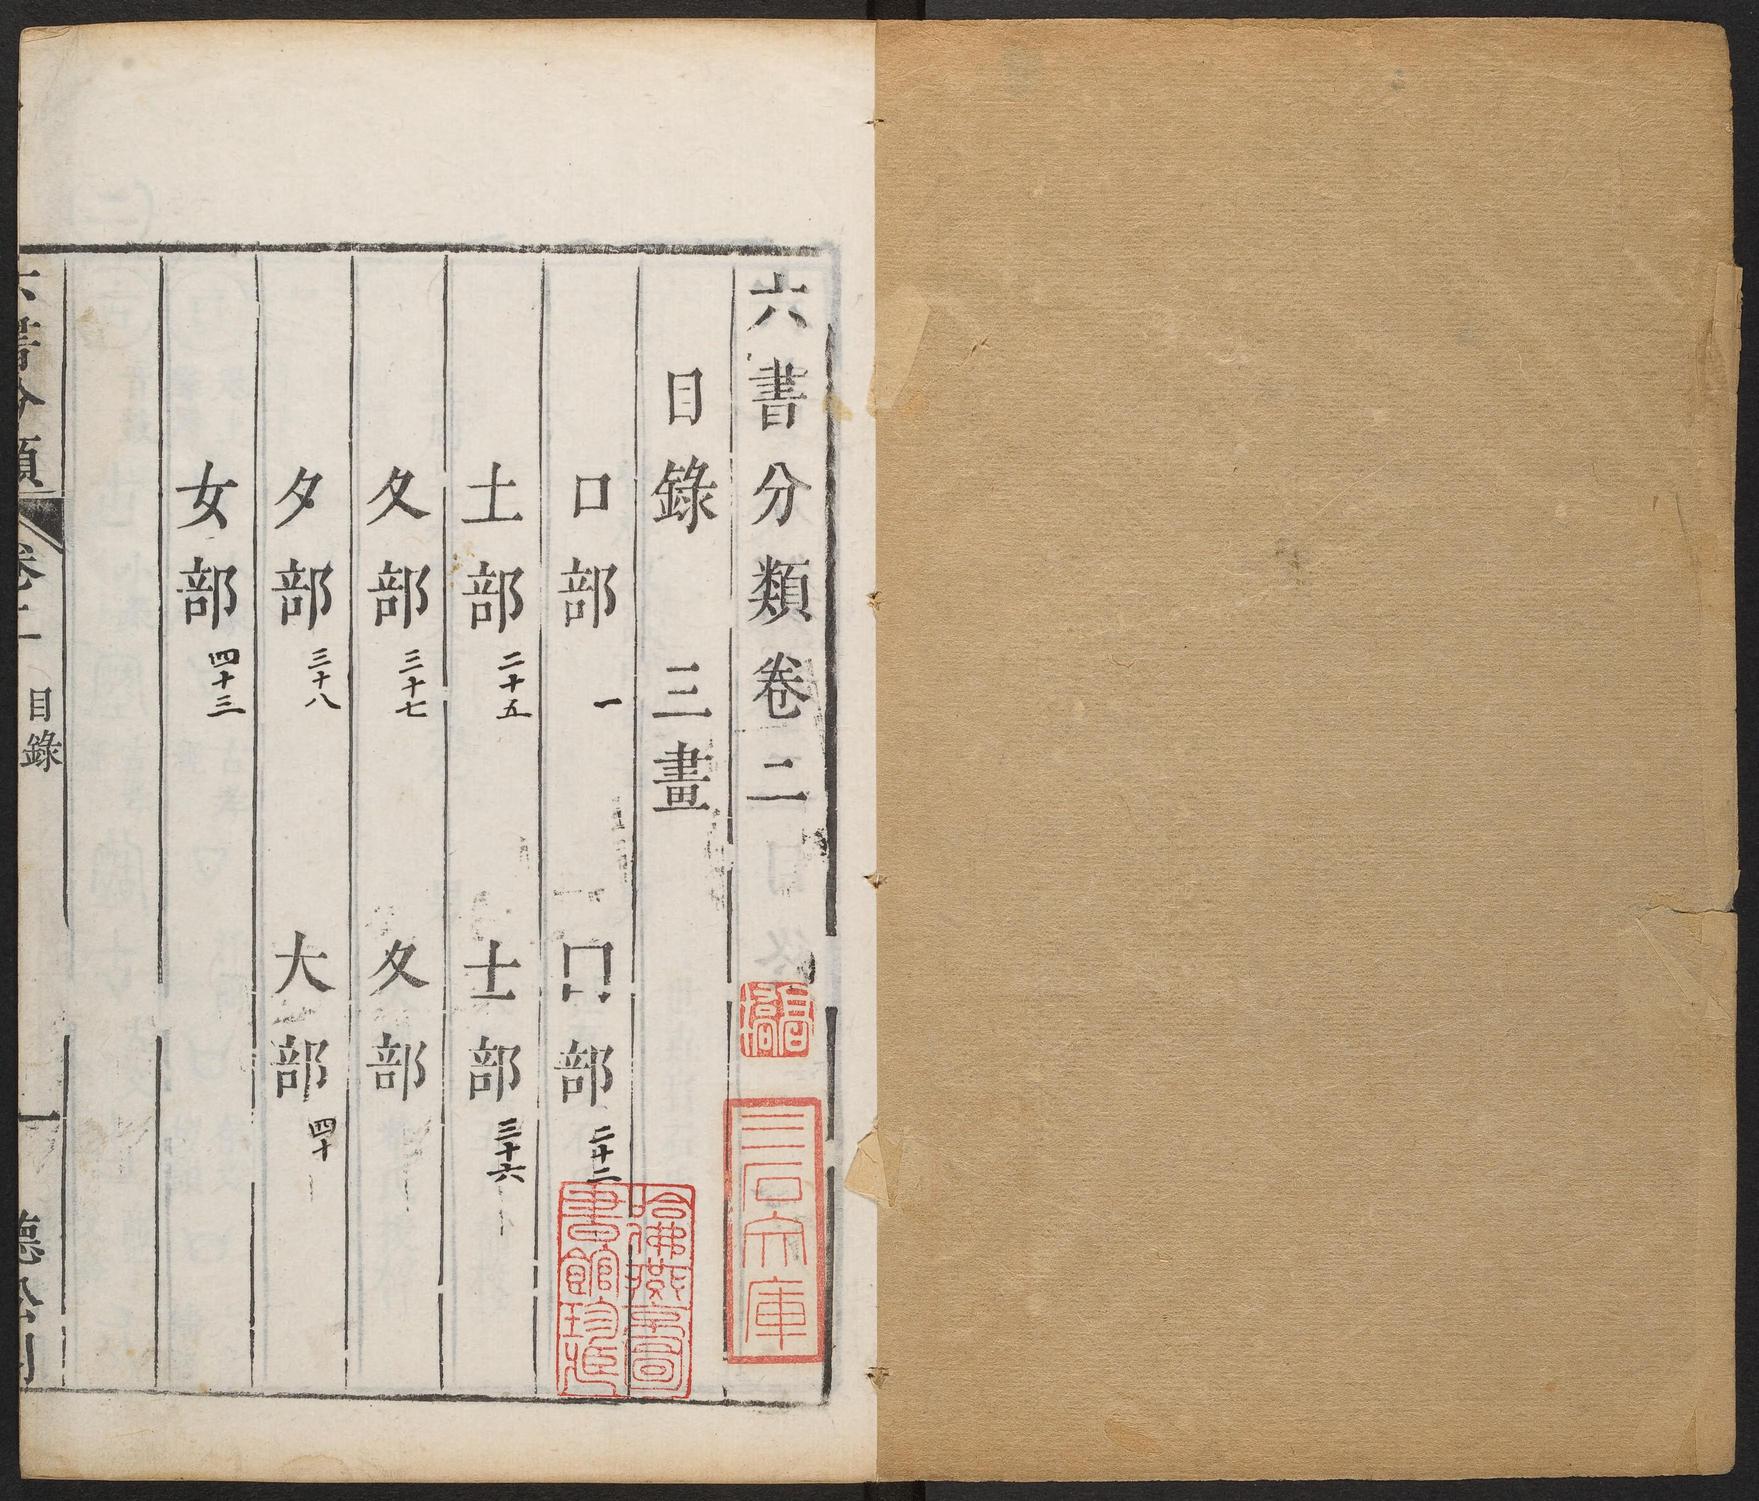 六書分類卷二
目錄 三畫
口部 一 囗部 二十二
土部 二十五 士部 三十六
夂部 三十七 夊部
夕部 三十八 大部 四十
女部 四十三
六書分類 卷二 目錄 一 聽松閣
三石文庫
哈佛燕京圖
書館珍藏